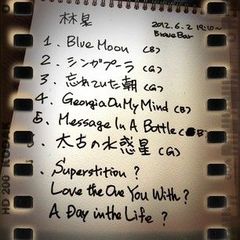 林晃
2012.6.2 19:10~
Brave Bar
1. Blue Moon (B)
2. シンガプーラ (G)
3. 忘れていた朝 (G)
4. Georgia On My Mind (B)
5. Message In A Bottle
6. 太古の水惑星 (G)
Superstition ?
Love the One You With ?
A Day in the Life ?
HD 200